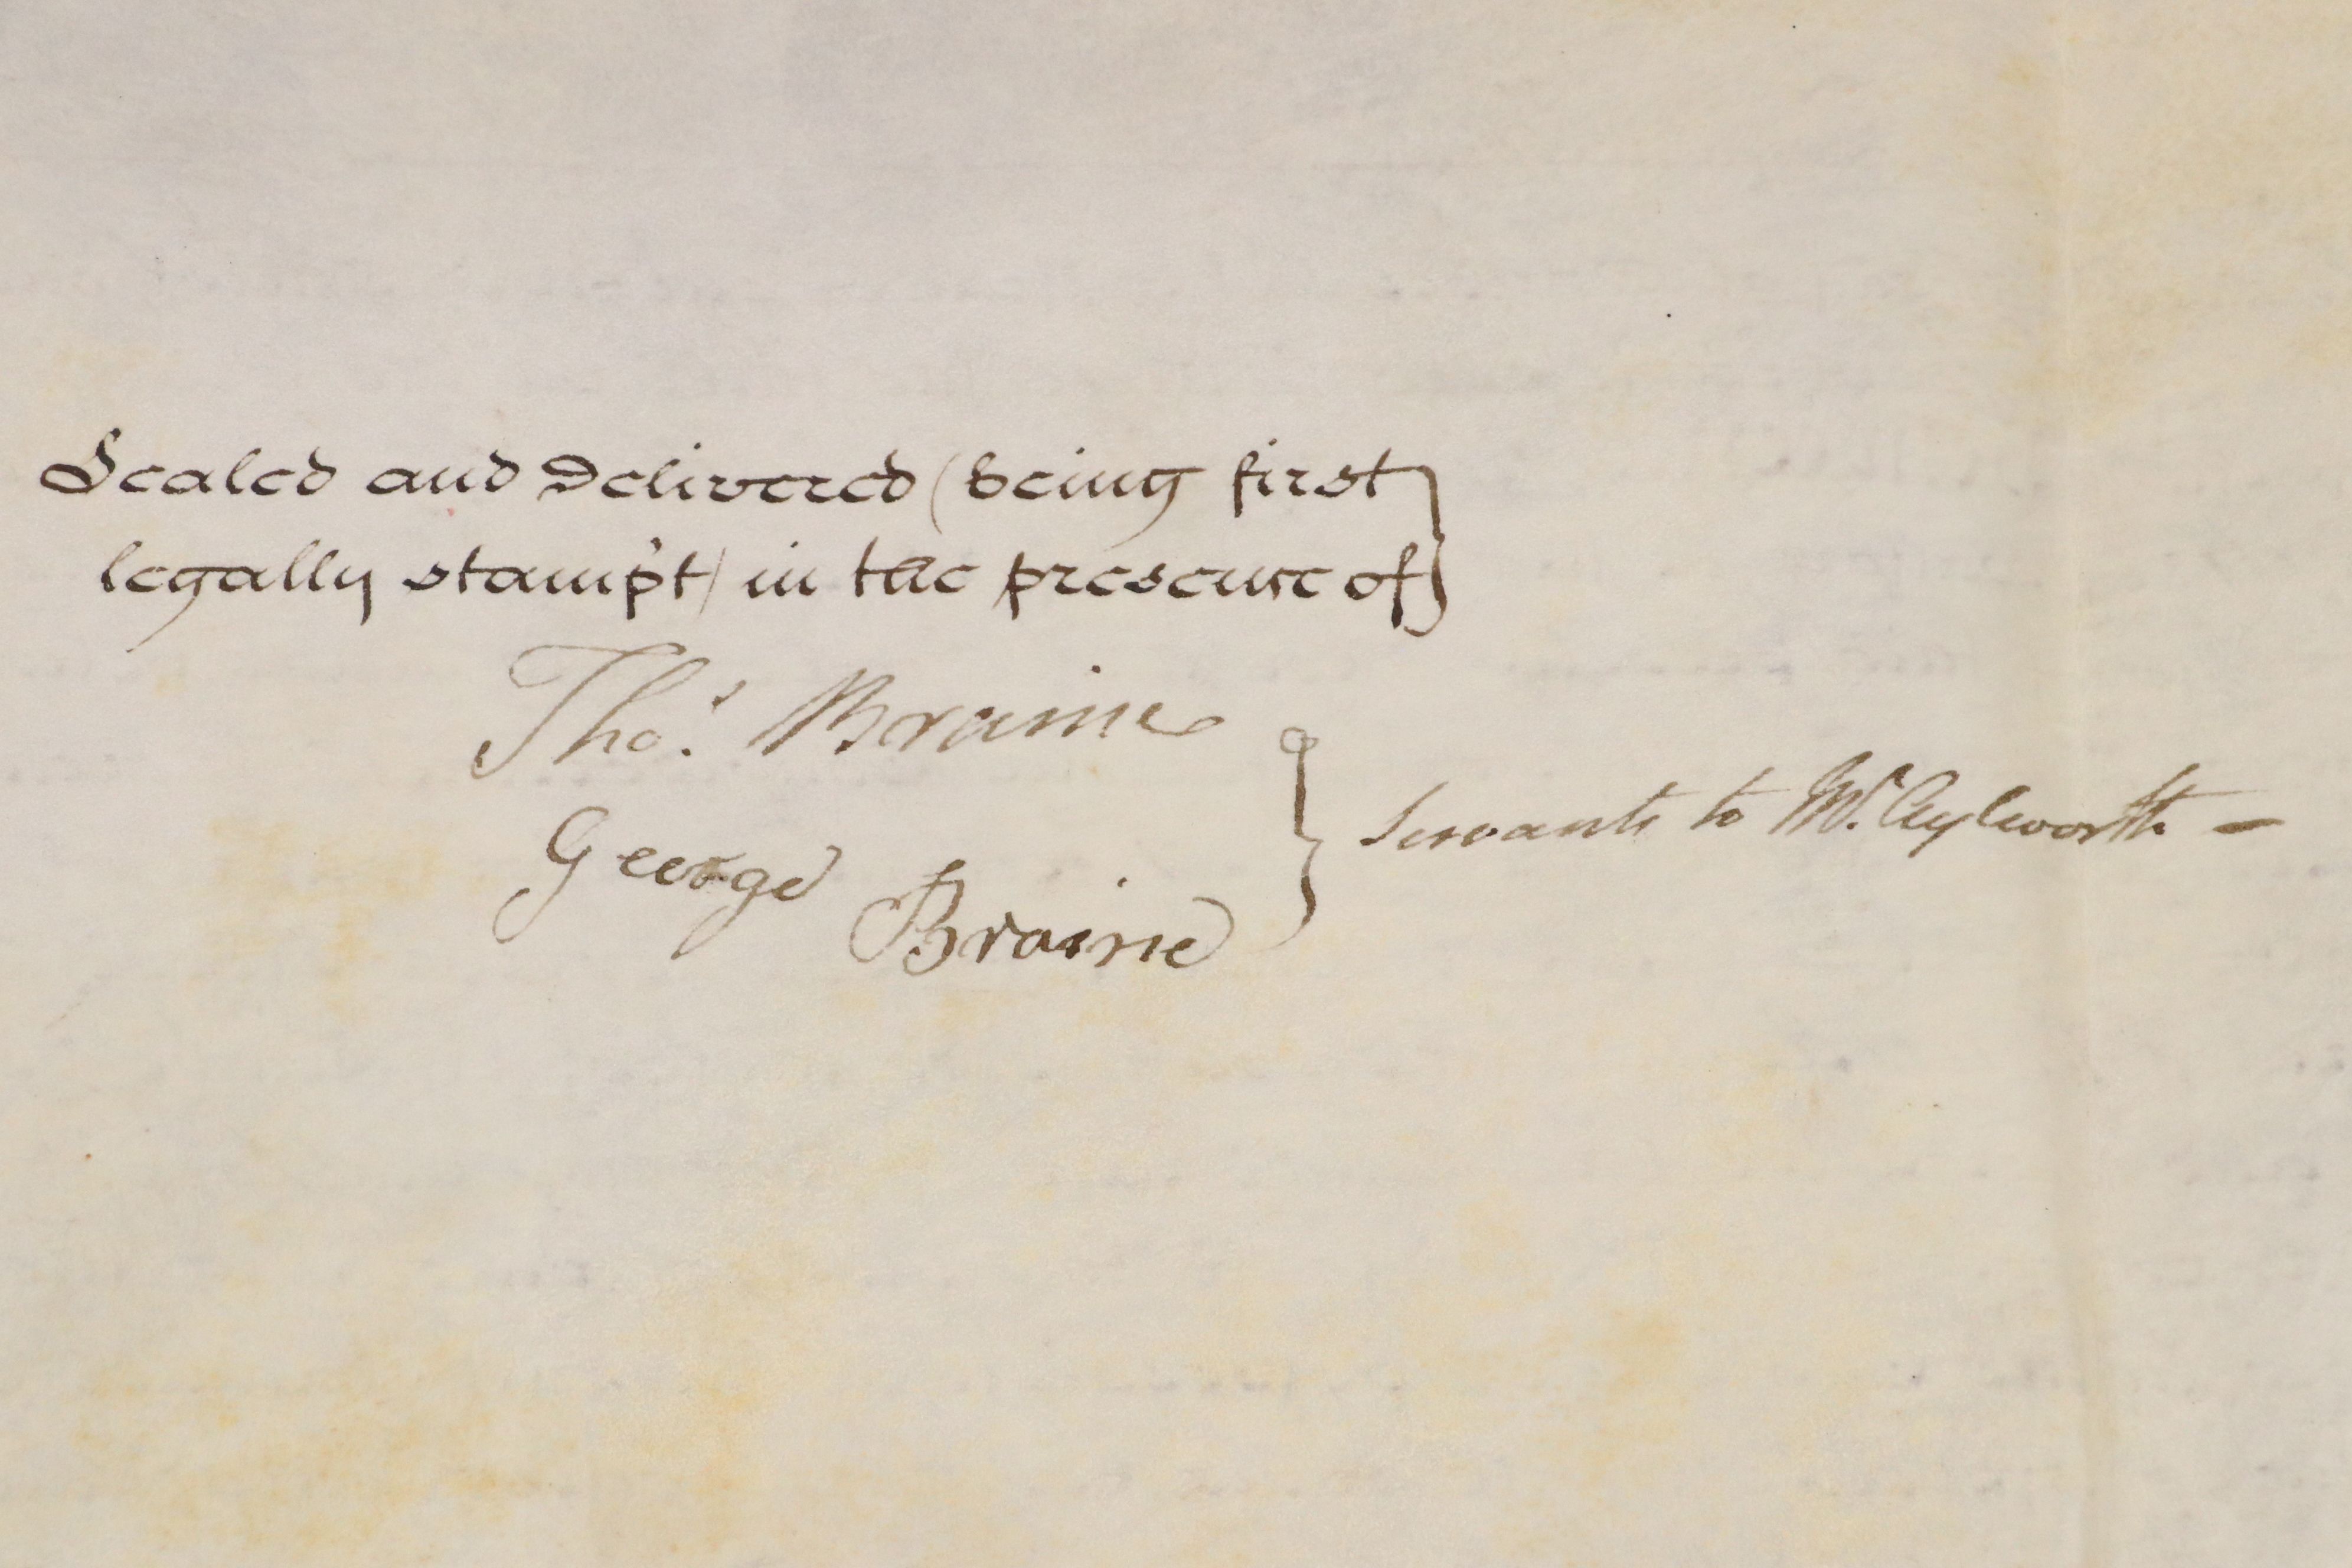 Sealed and Delivered (being first
legally stamp't) in the presence of
Tho.s Braine
George Braine
Servants to Mr. Aylworth -